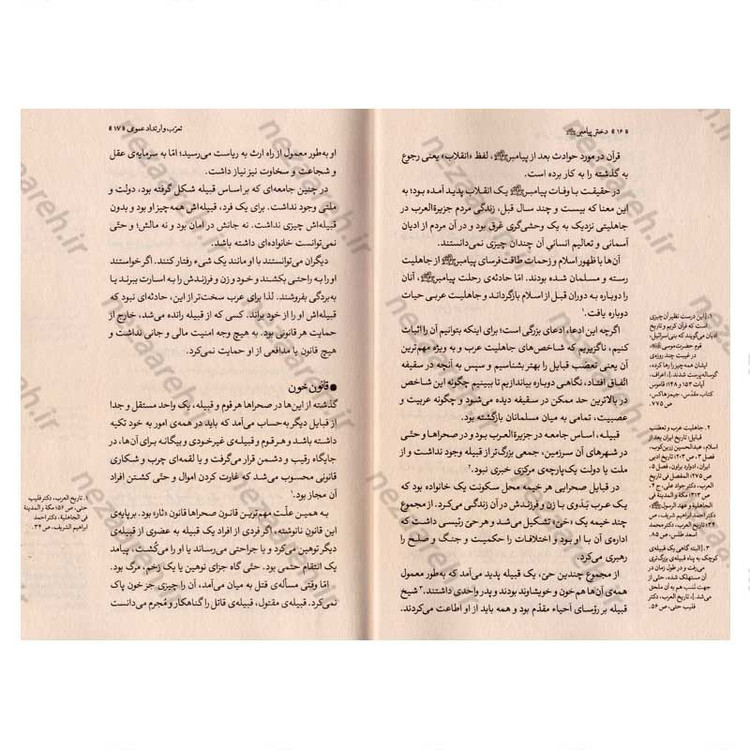 «۱۶» دختر پیامبرﷺ
قرآن در مورد حوادث بعد از پیامبرﷺ، لفظ «انقلاب» یعنی رجوع
به گذشته را به کار برده است.
در حقیقت با وفات پیامبرﷺ یک انقلاب پدید آمده بود؛ به
این معنا که بیست و چند سال قبل، زندگی مردم جزیرةالعرب در
جاهلیتی نزدیک به یک وحشی‌گری غرق بود و در آن مردم از ادیان
آسمانی و تعالیم انسانیِ آن چندان چیزی نمی‌دانستند.
آن‌ها با ظهور اسلام و زحمات طاقت‌فرسای پیامبرﷺ از جاهلیت
رسته و مسلمان شده بودند. امّا حادثه‌ی رحلت پیامبرﷺ، آنان
را دوباره به دوران قبل از اسلام بازگرداند و جاهلیت عربی حیات
دوباره یافت.۱
اگرچه این ادعا، ادعای بزرگی است؛ برای اینکه بتوانیم آن را اثبات
کنیم، ناگزیریم که شاخص‌های جاهلیت عرب و به ویژه مهم‌ترین
آن یعنی تعصّب قبایل را بهتر بشناسیم و سپس به آنچه در سقیفه
اتّفاق افتاد، نگاهی دوباره بیاندازیم تا ببینیم چگونه این شاخص
در بالاترین حد ممکن در سقیفه دیده می‌شود و چگونه عربیت و
عصبیت، تمامی به میان مسلمانان بازگشته بود.
قبیله، اساس جامعه در جزیرةالعرب بود و در صحراها و حتّی
در شهرهای آن سرزمین، جمعی بزرگ‌تر از قبیله وجود نداشت و از
ملت یا دولت یک‌پارچه‌ی مرکزی خبری نبود.۲
در قبایل صحرایی هر خیمه محل سکونت یک خانواده بود که
یک عرب بَدَوی با زن و فرزندش در آن زندگی می‌کرد. از مجموع
چند خیمه یک «حَی» تشکیل می‌شد و هر حیّ رئیسی داشت که
اداره‌ی آن با او بود و اختلافات را حکمیت و جنگ و صلح را
رهبری می‌کرد.
از مجموع چندین حیّ، یک قبیله پدید می‌آمد که به‌طور معمول
همه‌ی آن‌ها هم‌خون و خویشاوند بودند و پدر واحدی داشتند.۳ شیخ
قبیله بر رؤسای اَحیاء مقدّم بود و همه باید از او اطاعت می‌کردند.
۱. این درست نظیر آن چیزی
است که قرآن کریم و تاریخ
ادیان می‌گویند که بنی‌اسرائیل،
قوم حضرت‌موسی
در غیبت چند روزه‌ی
ایشان همه چیز را رها کرده،
گوساله‌پرست شدند. اعراف،
آیات ۱۵۳ و ۱۴۸؛ قاموس
کتاب مقدس، جیمزهاکس،
ص ۷۷۵.
۲. جاهلیت عرب و تعصّب
قبایل: تاریخ ایران بعد از
اسلام، عبدالحسین زرین‌کوب،
فصل ۳، ص ۲۰۳؛ تاریخ ادبی
ایران، ادوارد براون، فصل ۵،
ص ۲۷۵؛ المفصل فی تاریخ
العرب، دکتر جواد علی، ج ۴،
ص ۳۱۳؛ مکة و المدینة فی
الجاهلیة و عهد الرسول
دکتر احمد ابراهیم شریف، ص
۳۴؛ تاریخ العرب، دکتر محمد
اسعد طلس، ص ۸۵.
۳. البته گاهی یک قبیله‌ی
کوچک به پناه قبیله‌ی بزرگ‌تری
می‌رفت و در طول زمان در
آن مستهلک شده، حتی از
جهت نسب هم به آن ملحق
می‌شد. تاریخ العرب، دکتر
فلیپ حتی، ص ۵۶.
تعرّب و ارتداد عمومی «۱۷»
او به‌طور معمول از راه ارث به ریاست می‌رسید؛ امّا به سرمایه‌ی عقل
و شجاعت و سخاوت نیز نیاز داشت.
در چنین جامعه‌ای که بر اساس قبیله شکل گرفته بود، دولت و
ملتی وجود نداشت. برای یک فرد، قبیله‌اش همه‌چیز او بود و بدون
قبیله‌اش چیزی نداشت. نه جانش در امان بود و نه مالش؛ و حتّی
نمی‌توانست خانواده‌ای داشته باشد.
دیگران می‌توانستند با او مانند یک شیء رفتار کنند. اگر خواستند
او را به راحتی بکشند و خود و زن و فرزندش را به اسارت ببرند یا
به‌بردگی بفروشند. لذا برای عرب سخت‌تر از این، حادثه‌ای نبود که
قبیله‌اش او را از خود براند. کسی که از قبیله رانده می‌شد، خارج از
حمایت هر قانونی بود. به هیچ وجه امنیت مالی و جانی نداشت و
هیچ قانون یا مدافعی از او حمایت نمی‌کرد.
● قانون خون
گذشته از این‌ها در صحراها هر قوم و قبیله، یک واحد مستقل و جدا
از قبایل دیگر به‌حساب می‌آمد که باید در همه‌ی امور به خود تکیه
داشته باشد و هر قوم و قبیله‌ی غیرخودی و بیگانه برای آن‌ها، در
جایگاه رقیب و دشمن قرار می‌گرفت و لقمه‌ای چرب و شکاری
قانونی محسوب می‌شد که غارت کردن اموال و حتّی کشتن افراد
آن مجاز بود.۱
به همین علّت مهم‌ترین قانون صحراها قانون «ثار» بود. برپایه‌ی
این قانون نانوشته، اگر فردی از افراد یک قبیله به عضوی از قبیله‌ی
دیگر توهین می‌کرد و یا جراحتی می‌رساند یا او را می‌کشت، پیامد
یک انتقام حتمی بود. حتّی گاه جزای توهین یا یک زخم، مرگ بود.
امّا وقتی مسأله‌ی قتل به میان می‌آمد، آن را چیزی جز خون پاک
نمی‌کرد. قبیله‌ی مقتول، قبیله‌ی قاتل را گناهکار و مُجرم می‌دانست
۱. تاریخ العرب، دکتر فلیپ
حتی، ص ۵۶؛ مکة و المدینة
فی الجاهلیة، دکتر احمد
ابراهیم الشریف، ص ۳۴.
nezaareh.ir